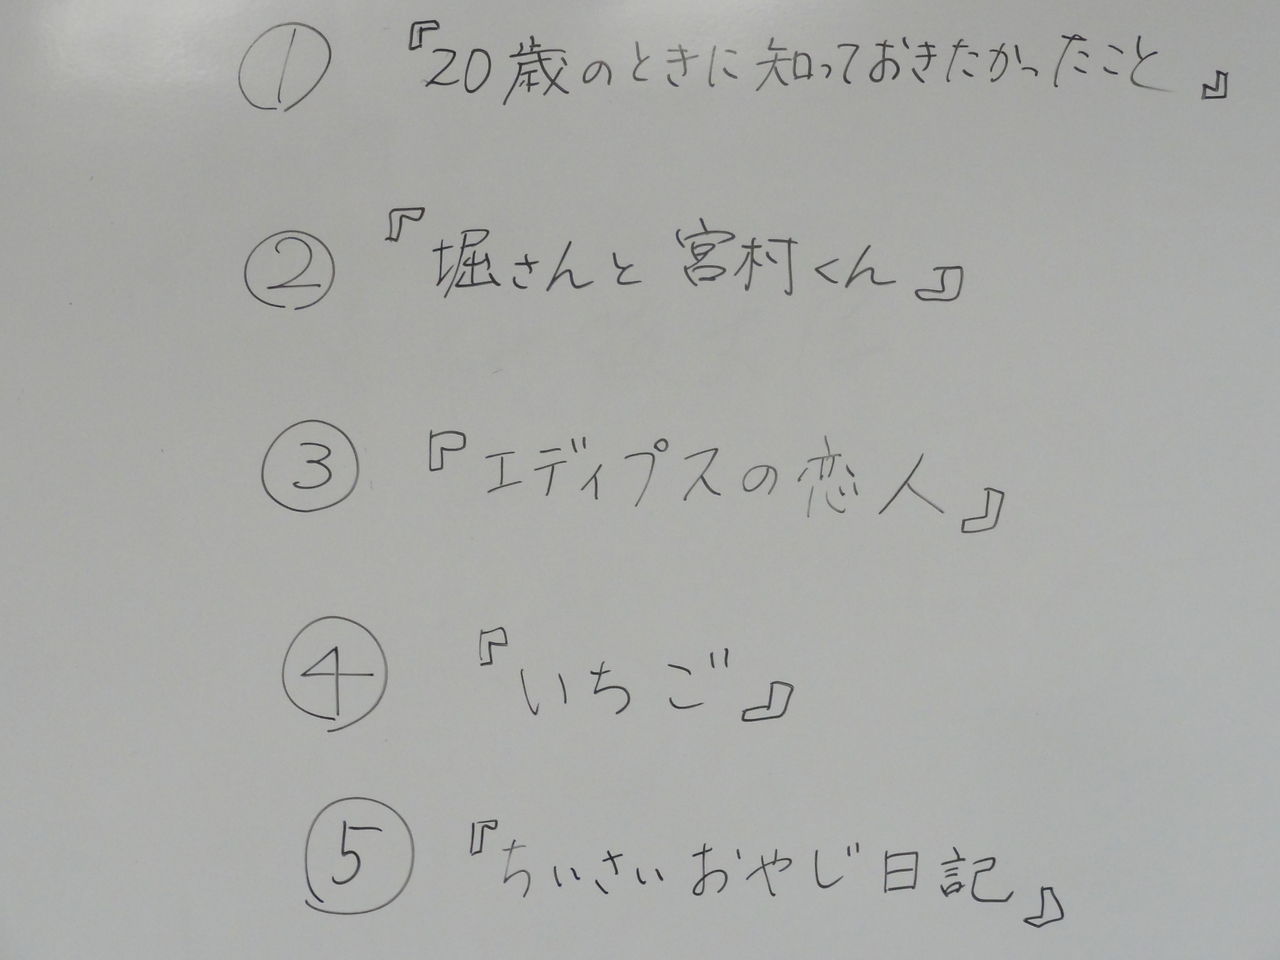 ① 『20歳のときに知っておきたかったこと』
② 『堀さんと宮村くん』
③ 『エディプスの恋人』
④ 『いちご』
⑤ 『ちいさいおやじ日記』